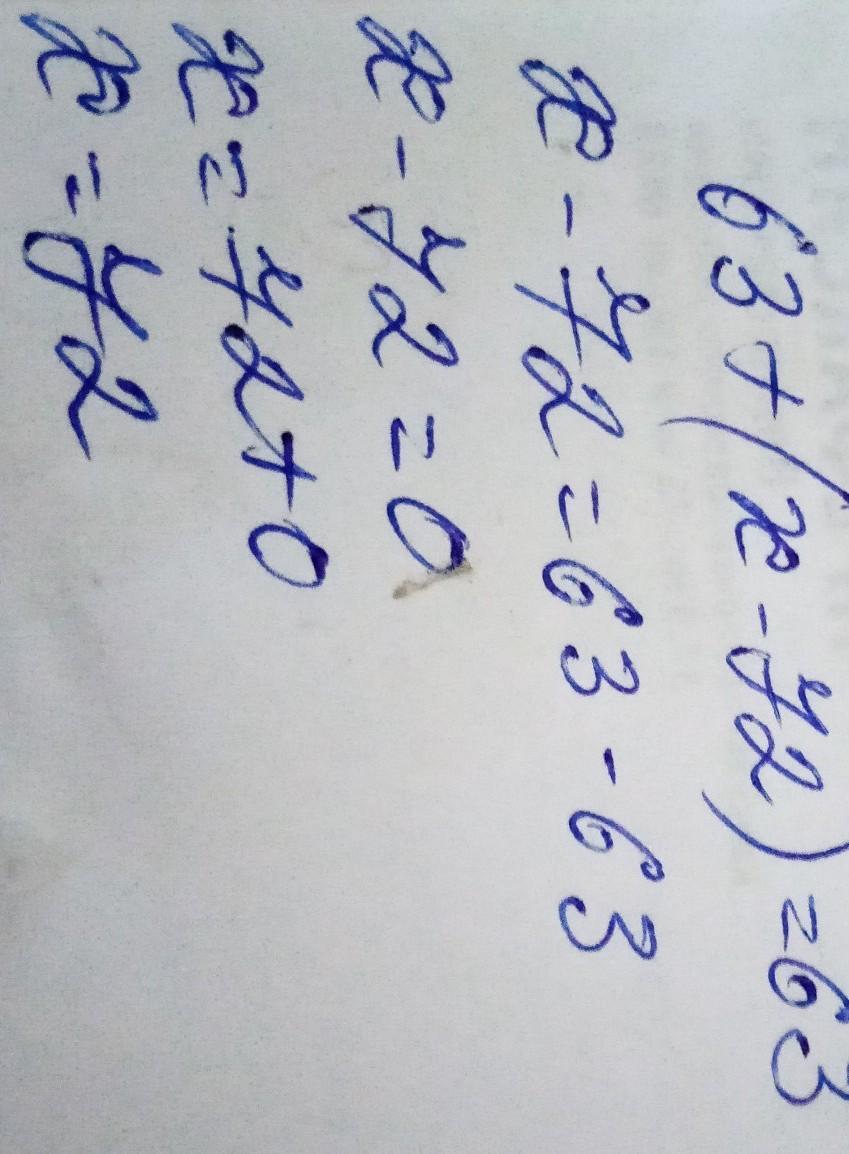 63+(x-72)=63
x-72=63-63
x-72=0
x=72+0
x=72